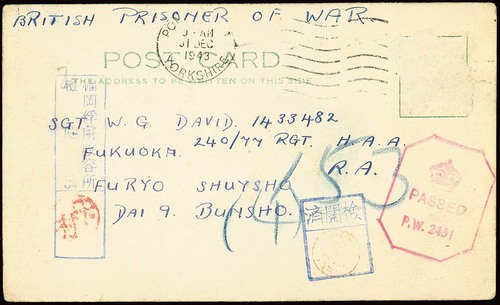 BRITISH PRISONER OF WAR.
31 DEC
1943
YORKSHIRE
POST CARD
THE ADDRESS TO BE WRITTEN ON THIS SIDE
SGT W. G. DAVID. 1433482
240/77 RGT. H.A.A.
R.A.
FUKUOKA.
FURYO SHUYSHO
DAI 9. BUNSHO.
1453
福岡俘虜收容所
檢閱濟
PASSED
P.W. 2451